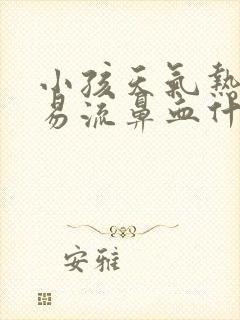 小孩天氣熱
易流鼻血什
安雅